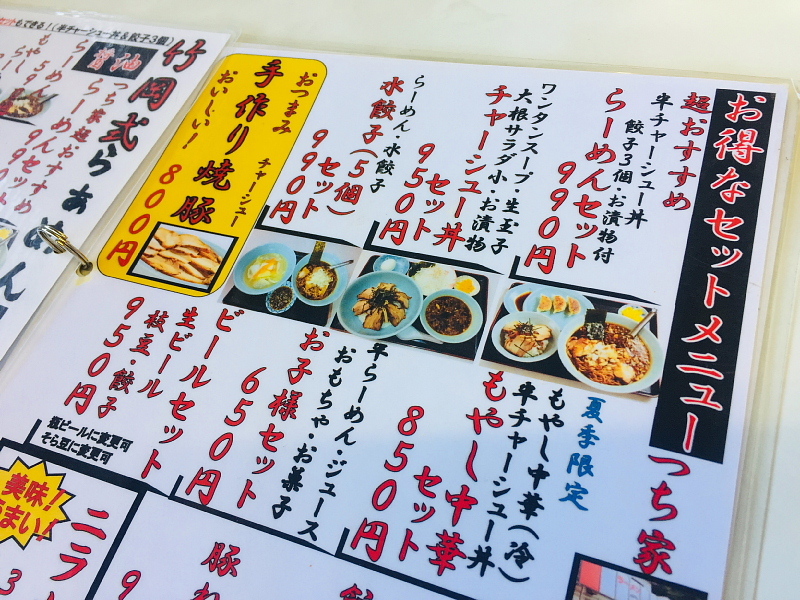 お得なセットメニュー
つち家
超おすすめ
半チャーシュー丼
餃子3個・お漬物付
らーめんセット
990円
ワンタンスープ・生玉子
大根サラダ小・お漬物
チャーシュー丼
セット
950円
らーめん・水餃子
水餃子(5個)
セット
990円
おつまみ
チャーシュー
手作り焼豚
おいしい!
800円
夏季限定
もやし中華(冷)
半チャーシュー丼
もやし中華
セット
850円
半らーめん・ジュース
おもちゃ・お菓子
お子様セット
650円
ビールセット
生ビール
枝豆・餃子
950円
瓶ビールに変更可
そら豆に変更可
セットもできる!(半チャーシュー丼&餃子3個)
竹岡式らぁめん
醤油
つち家超おすすめ
らーめんセット
990
もやし
美味!
うまい!
ニラ
豚